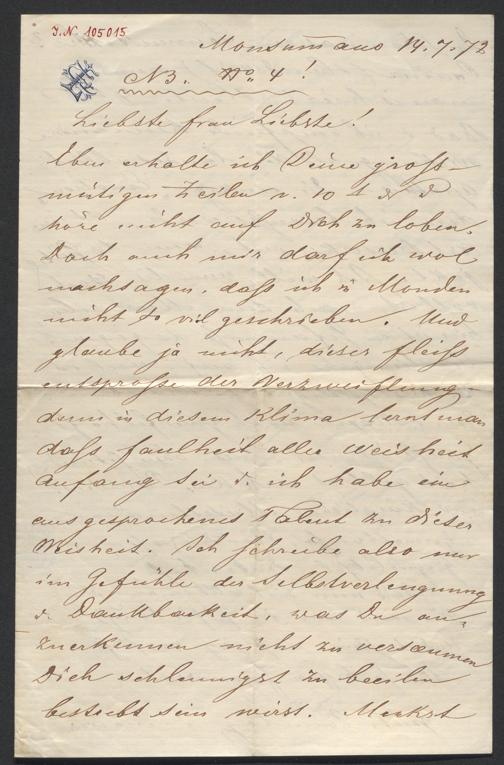 I.N 105015
Monsummano 14.7.72
N3. No. 4!
Liebste Frau Liebste!
Eben erhalte ich Deine gross-
mütigen Zeilen v. 10
höre nicht auf Dich zu loben.
Doch auch mir darf ich wol
nachsagen, dass ich Monden
nicht so vil geschrieben. Und
glaube ja nicht, dieser Fleiss
entsprosse der Verzweiflung –
denn in diesem Klima lernt man
dass Faulheit aller Weisheit
Anfang sei u. ich habe ein
ausgesprochenes Talent zu dieser
Weisheit. Ich schreibe also nur
im Gefühle der Selbstverleugnung
u. Dankbarkeit, was Du an-
zuerkennen nicht zu versäumen
Dich schleunigst zu beeilen
bestrebt sein wirst. Merkst